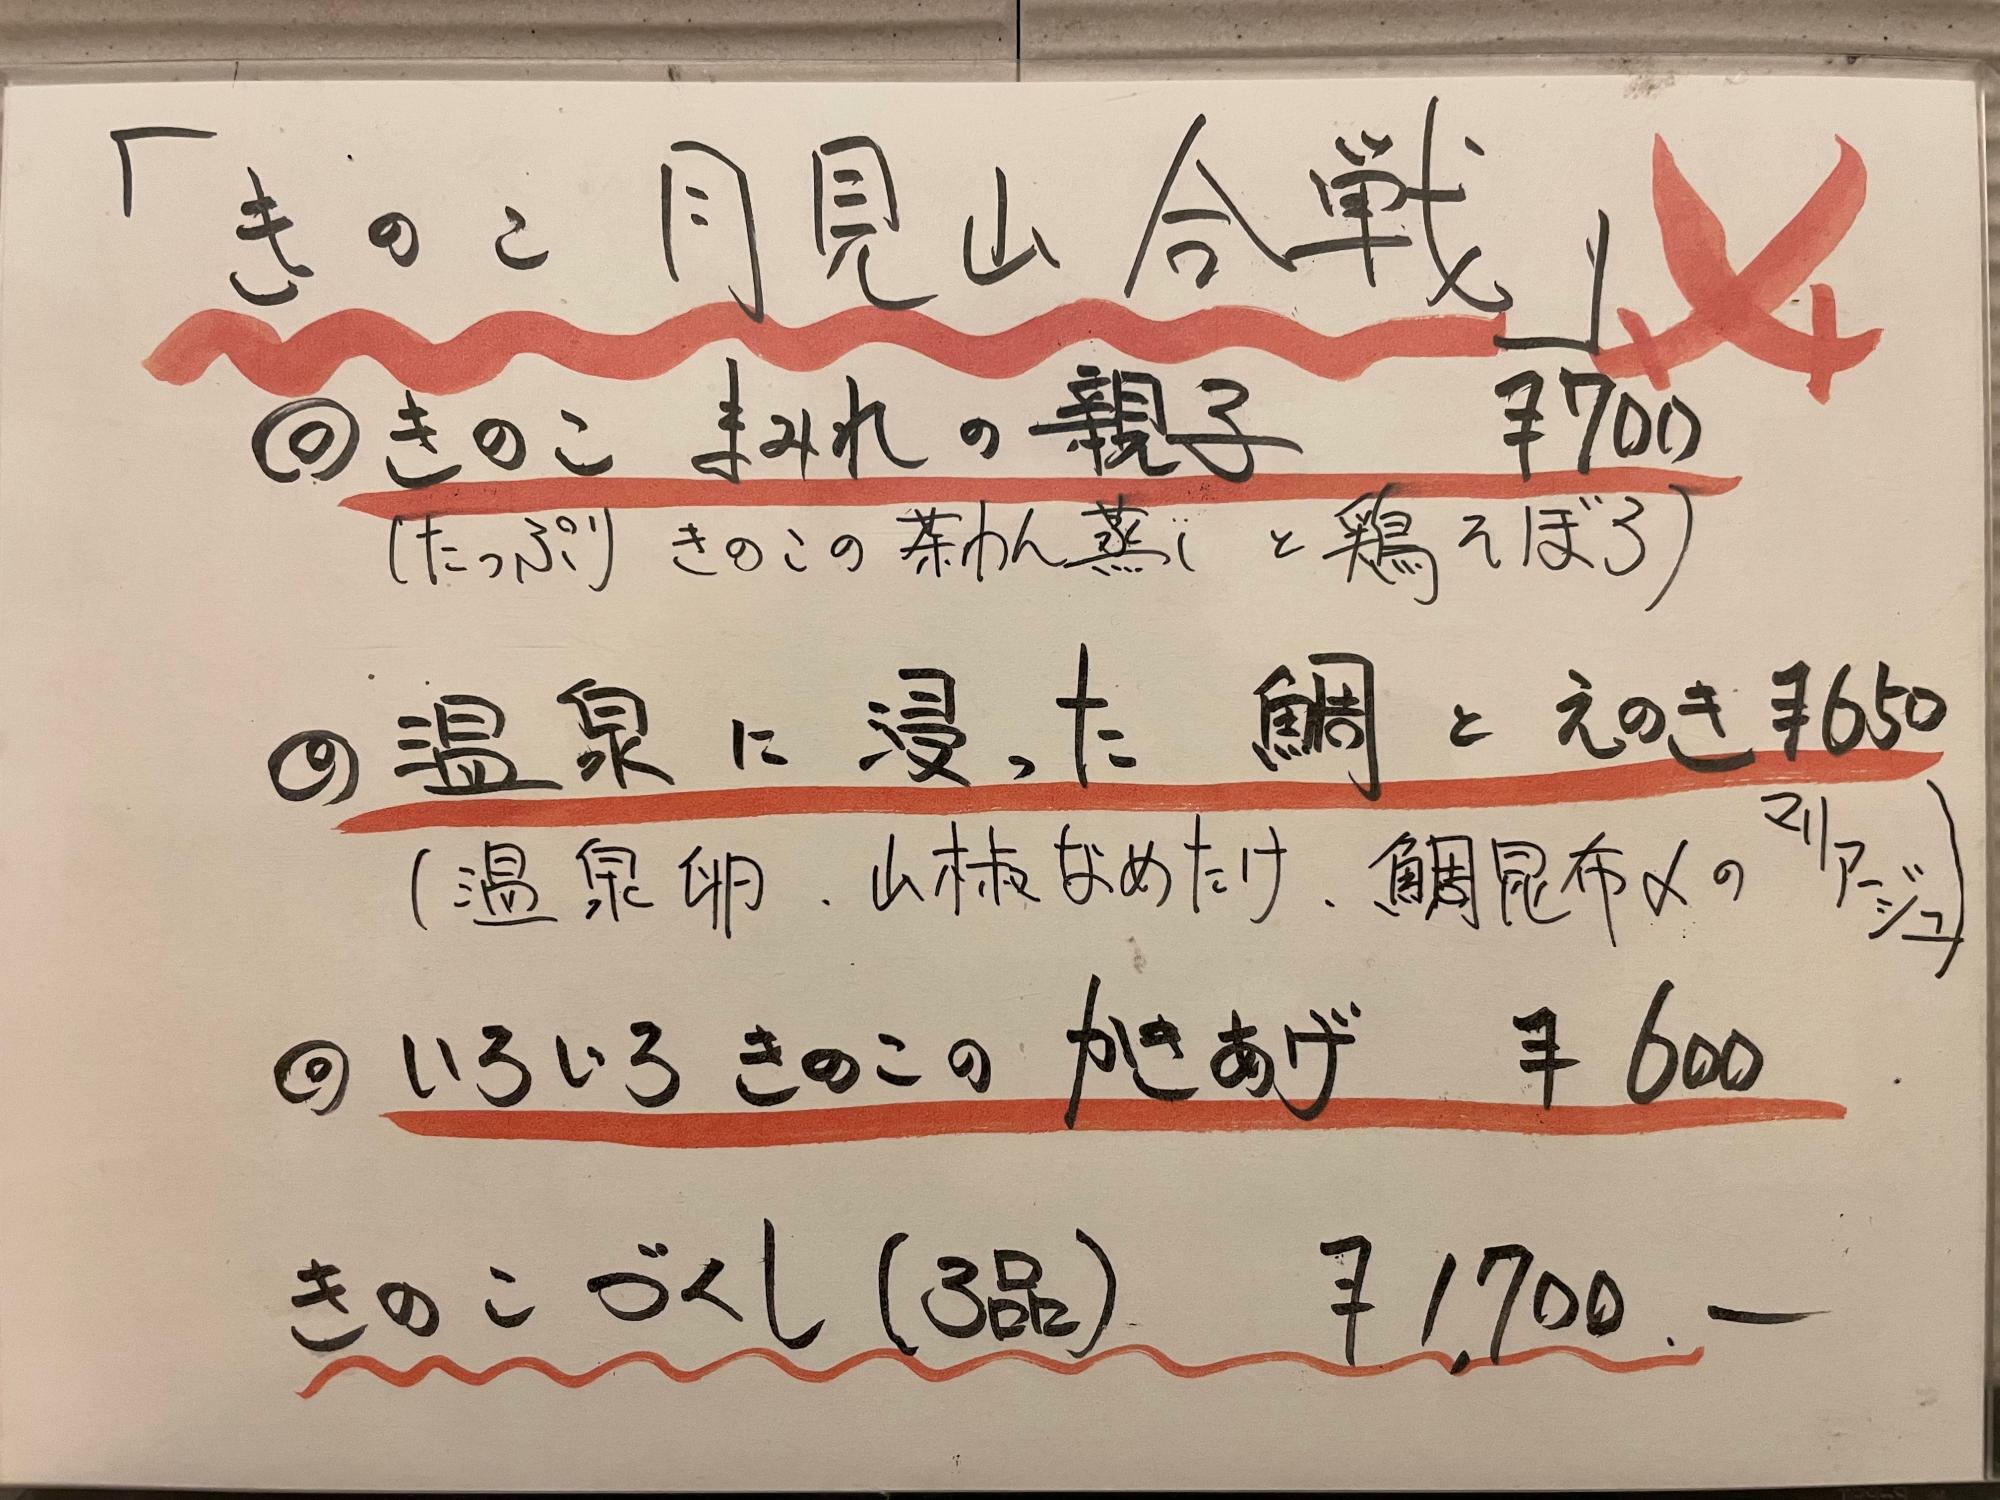 「きのこ月見山合戦」
◎きのこまみれの親子 ¥700
(たっぷりきのこの茶わん蒸しと鶏そぼろ)
◎温泉に浸った鯛とえのき ¥650
(温泉卵、山椒なめたけ、鯛昆布〆のマリアージュ)
◎いろいろきのこのかきあげ ¥600
きのこづくし(3品) ¥1,700.ー